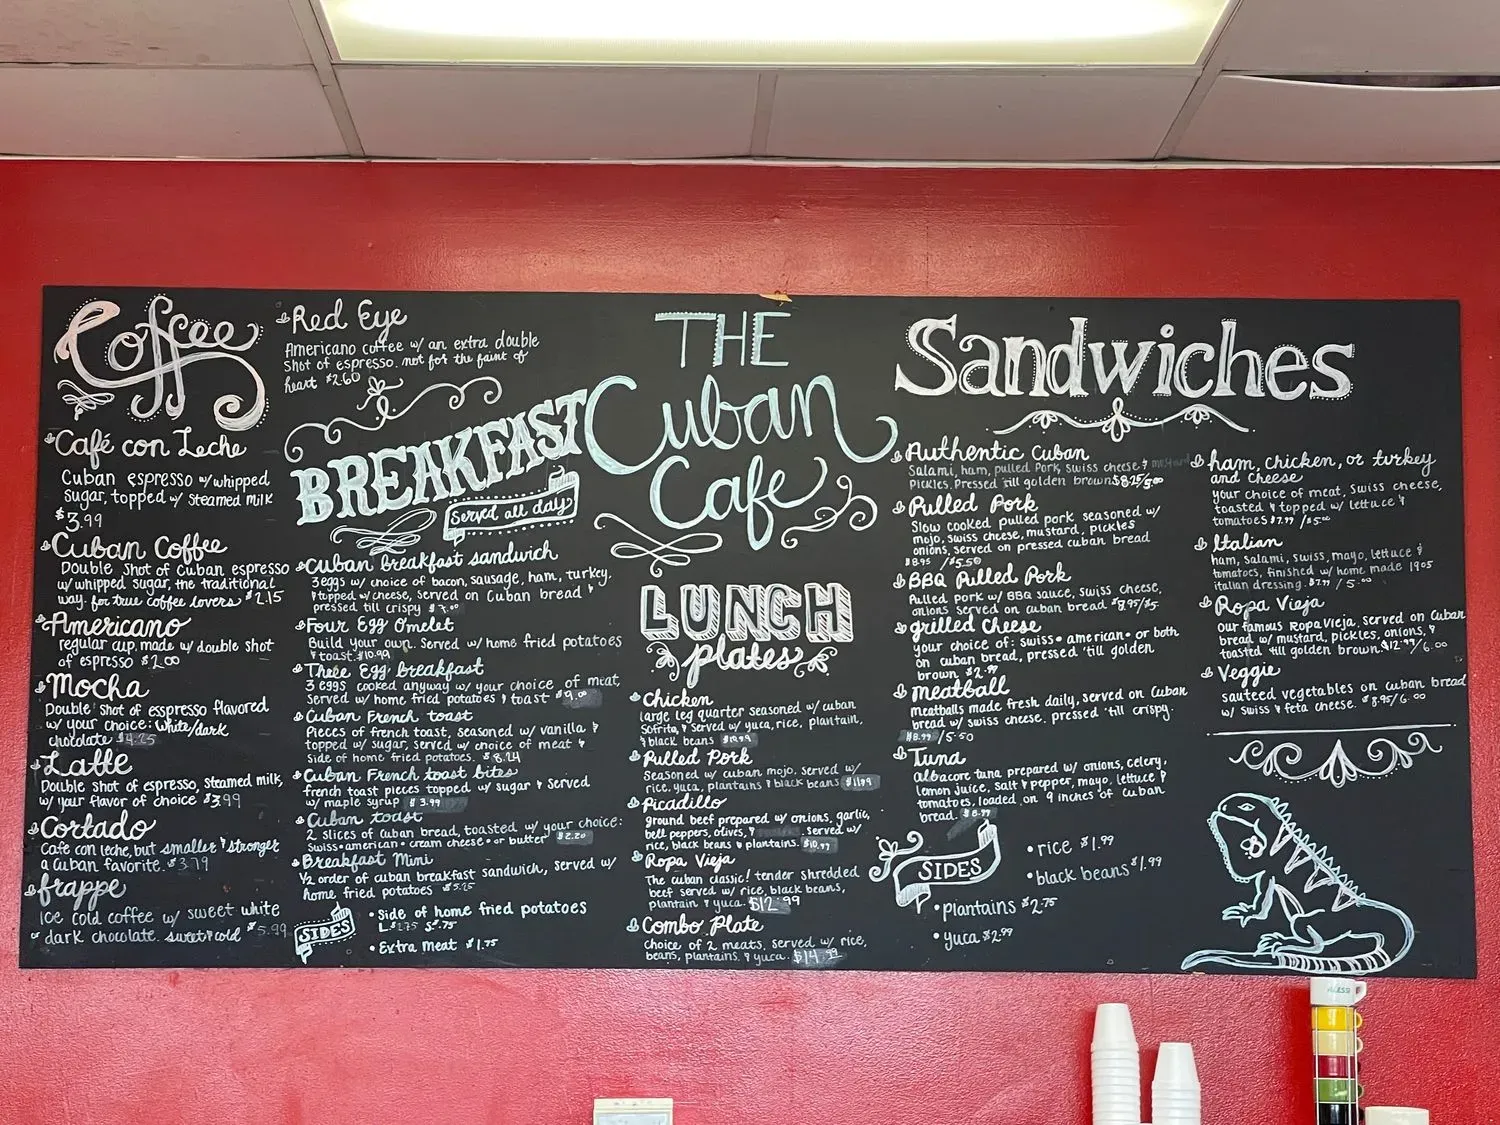 Coffee
Café con Leche
Cuban espresso w/whipped
sugar, topped w/ steamed milk
$3.99
Cuban Coffee
Double shot of Cuban espresso
w/whipped sugar, the traditional
way. for true coffee lovers $2.15
Americano
regular cup made w/ double shot
of espresso $2.00
Mocha
Double shot of espresso flavored
w/ your choice: white/dark
chocolate $4.25
Latte
Double shot of espresso, steamed milk,
w/ your flavor of choice $3.99
Cortado
Cafe con leche, but smaller & stronger
a Cuban favorite. $3.79
frappe
Ice cold coffee w/ sweet white
or dark chocolate. sweet & cold $5.99
Red Eye
Americano coffee w/ an extra double
shot of espresso. not for the faint of
heart $2.60
BREAKFAST
Served all day
Cuban breakfast sandwich
3 eggs w/ choice of bacon, sausage, ham, turkey.
topped w/ cheese, served on Cuban bread &
pressed till crispy
Four Egg Omelet
Build your own. Served w/ home fried potatoes
& toast. $10.99
Three Egg breakfast
3 eggs cooked anyway w/ your choice of meat,
Served w/ home fried potatoes & toast $9.00
Cuban French toast
Pieces of french toast, seasoned w/ vanilla &
topped w/ sugar, served w/ choice of meat &
side of home fried potatoes. $8.24
Cuban French toast bites
french toast pieces topped w/ sugar & served
w/ maple syrup $3.99
Cuban toast
2 slices of Cuban bread, toasted w/ your choice:
Swiss • american • cream cheese • or butter $2.20
Breakfast Mini
1/2 order of Cuban breakfast sandwich, served w/
home fried potatoes $5.25
SIDES
• Side of home fried potatoes
• Extra meat $1.75
THE
Cuban
Cafe
LUNCH
plates
Chicken
large leg quarter seasoned w/ cuban
Sofrito, & served w/ yuca, rice, plantain,
& black beans $10.99
Pulled Pork
Seasoned w/ cuban mojo, served w/
rice, yuca, plantains & black beans $11.99
Picadillo
ground beef prepared w/ onions, garlic,
bell peppers, olives, & served w/
rice, black beans & plantains. $10.99
Ropa Vieja
The cuban classic! tender shredded
beef served w/ rice, black beans,
plantain & yuca. $12.99
Combo Plate
choice of 2 meats, served w/ rice,
beans, plantains, & yuca. $14.99
Sandwiches
Authentic Cuban
Salami, ham, pulled pork, swiss cheese & mustard
Pickles. Pressed 'till golden brown $8.25/5.00
Pulled Pork
Slow cooked pulled pork seasoned w/
mojo, swiss cheese, mustard, pickles
onions, served on pressed cuban bread
$8.95 /$5.50
BBQ Pulled Pork
Pulled pork w/ BBQ sauce, swiss cheese,
onions served on cuban bread $8.95/$5.
grilled cheese
your choice of: swiss • american • or both
on cuban bread, pressed 'till golden
brown $2.99
meatball
Meatballs made fresh daily, served on Cuban
bread w/ swiss cheese. pressed 'till crispy.
$8.99 /5.50
Tuna
albacore tuna prepared w/ onions, celery,
lemon juice, salt & pepper, mayo, lettuce &
tomatoes, loaded on 9 inches of Cuban
bread. $8.99
ham, chicken, or turkey
and cheese
your choice of meat, swiss cheese,
toasted & topped w/ lettuce &
tomatoes $7.99 /$5.00
Italian
ham, salami, swiss, mayo, lettuce &
tomatoes, finished w/ home made 1905
italian dressing. $7.99 / 5.00
Ropa Vieja
Our famous Ropa Vieja, served on Cuban
bread w/ mustard, pickles, onions, &
toasted 'till golden brown. $12.99/6.00
Veggie
sauteed vegetables on cuban bread
w/ swiss & feta cheese. $8.95/6.00
SIDES
• rice $1.99
• black beans $1.99
• plantains $2.75
• yuca $2.99